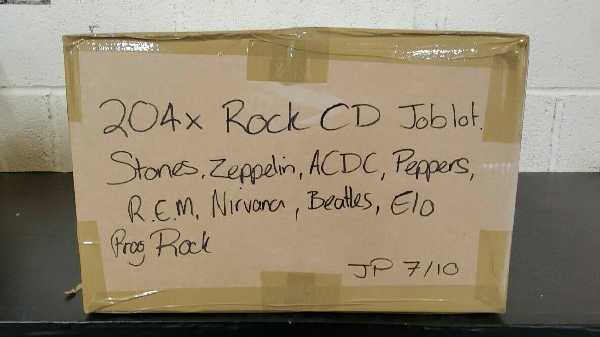 204x Rock CD Joblot.
Stones, Zeppelin, ACDC, Peppers,
R.E.M, Nirvana, Beatles, Elo
Prog Rock
JP 7/10